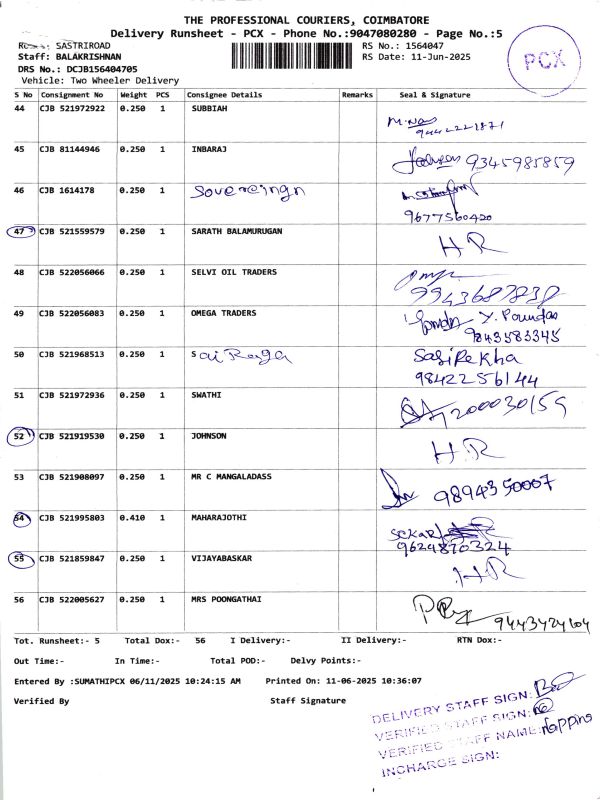 THE PROFESSIONAL COURIERS, COIMBATORE
Delivery Runsheet - PCX - Phone No.:9047080280 - Page No.:5
SASTRIROAD RS No.: 1564047
Staff: BALAKRISHNAN RS Date: 11-Jun-2025
PCX
DRS No.: DCJB156404705
Vehicle: Two Wheeler Delivery
S No Consignment No Weight PCS Consignee Details Remarks Seal & Signature
44 CJB 521972922 0.250 1 SUBBIAH
9442221871
45 CJB 81144946 0.250 1 INBARAJ
9345985859
46 CJB 1614178 0.250 1 Sovereingn
9677560420
47 CJB 521559579 0.250 1 SARATH BALAMURUGAN
H R
48 CJB 522056066 0.250 1 SELVI OIL TRADERS
49 CJB 522056083 0.250 1 OMEGA TRADERS
9843583345
50 CJB 521968513 0.250 1 Sai Raga
SasiRekha
9842256144
51 CJB 521972936 0.250 1 SWATHI
52 CJB 521919530 0.250 1 JOHNSON
H.R
53 CJB 521908097 0.250 1 MR C MANGALADASS
9894350007
54 CJB 521995803 0.410 1 MAHARAJOTHI
sekar
9629870324
55 CJB 521859847 0.250 1 VIJAYABASKAR
H R
56 CJB 522005627 0.250 1 MRS POONGATHAI
Tot. Runsheet:- 5 Total Dox:- 56 I Delivery:- II Delivery:- RTN Dox:-
Out Time:- In Time:- Total POD:- Delvy Points:-
Entered By :SUMATHIPCX 06/11/2025 10:24:15 AM Printed On: 11-06-2025 10:36:07
Verified By Staff Signature
DELIVERY STAFF SIGN:
VERIFIED STAFF SIGN:
VERIFIED STAFF NAME:
INCHARGE SIGN: